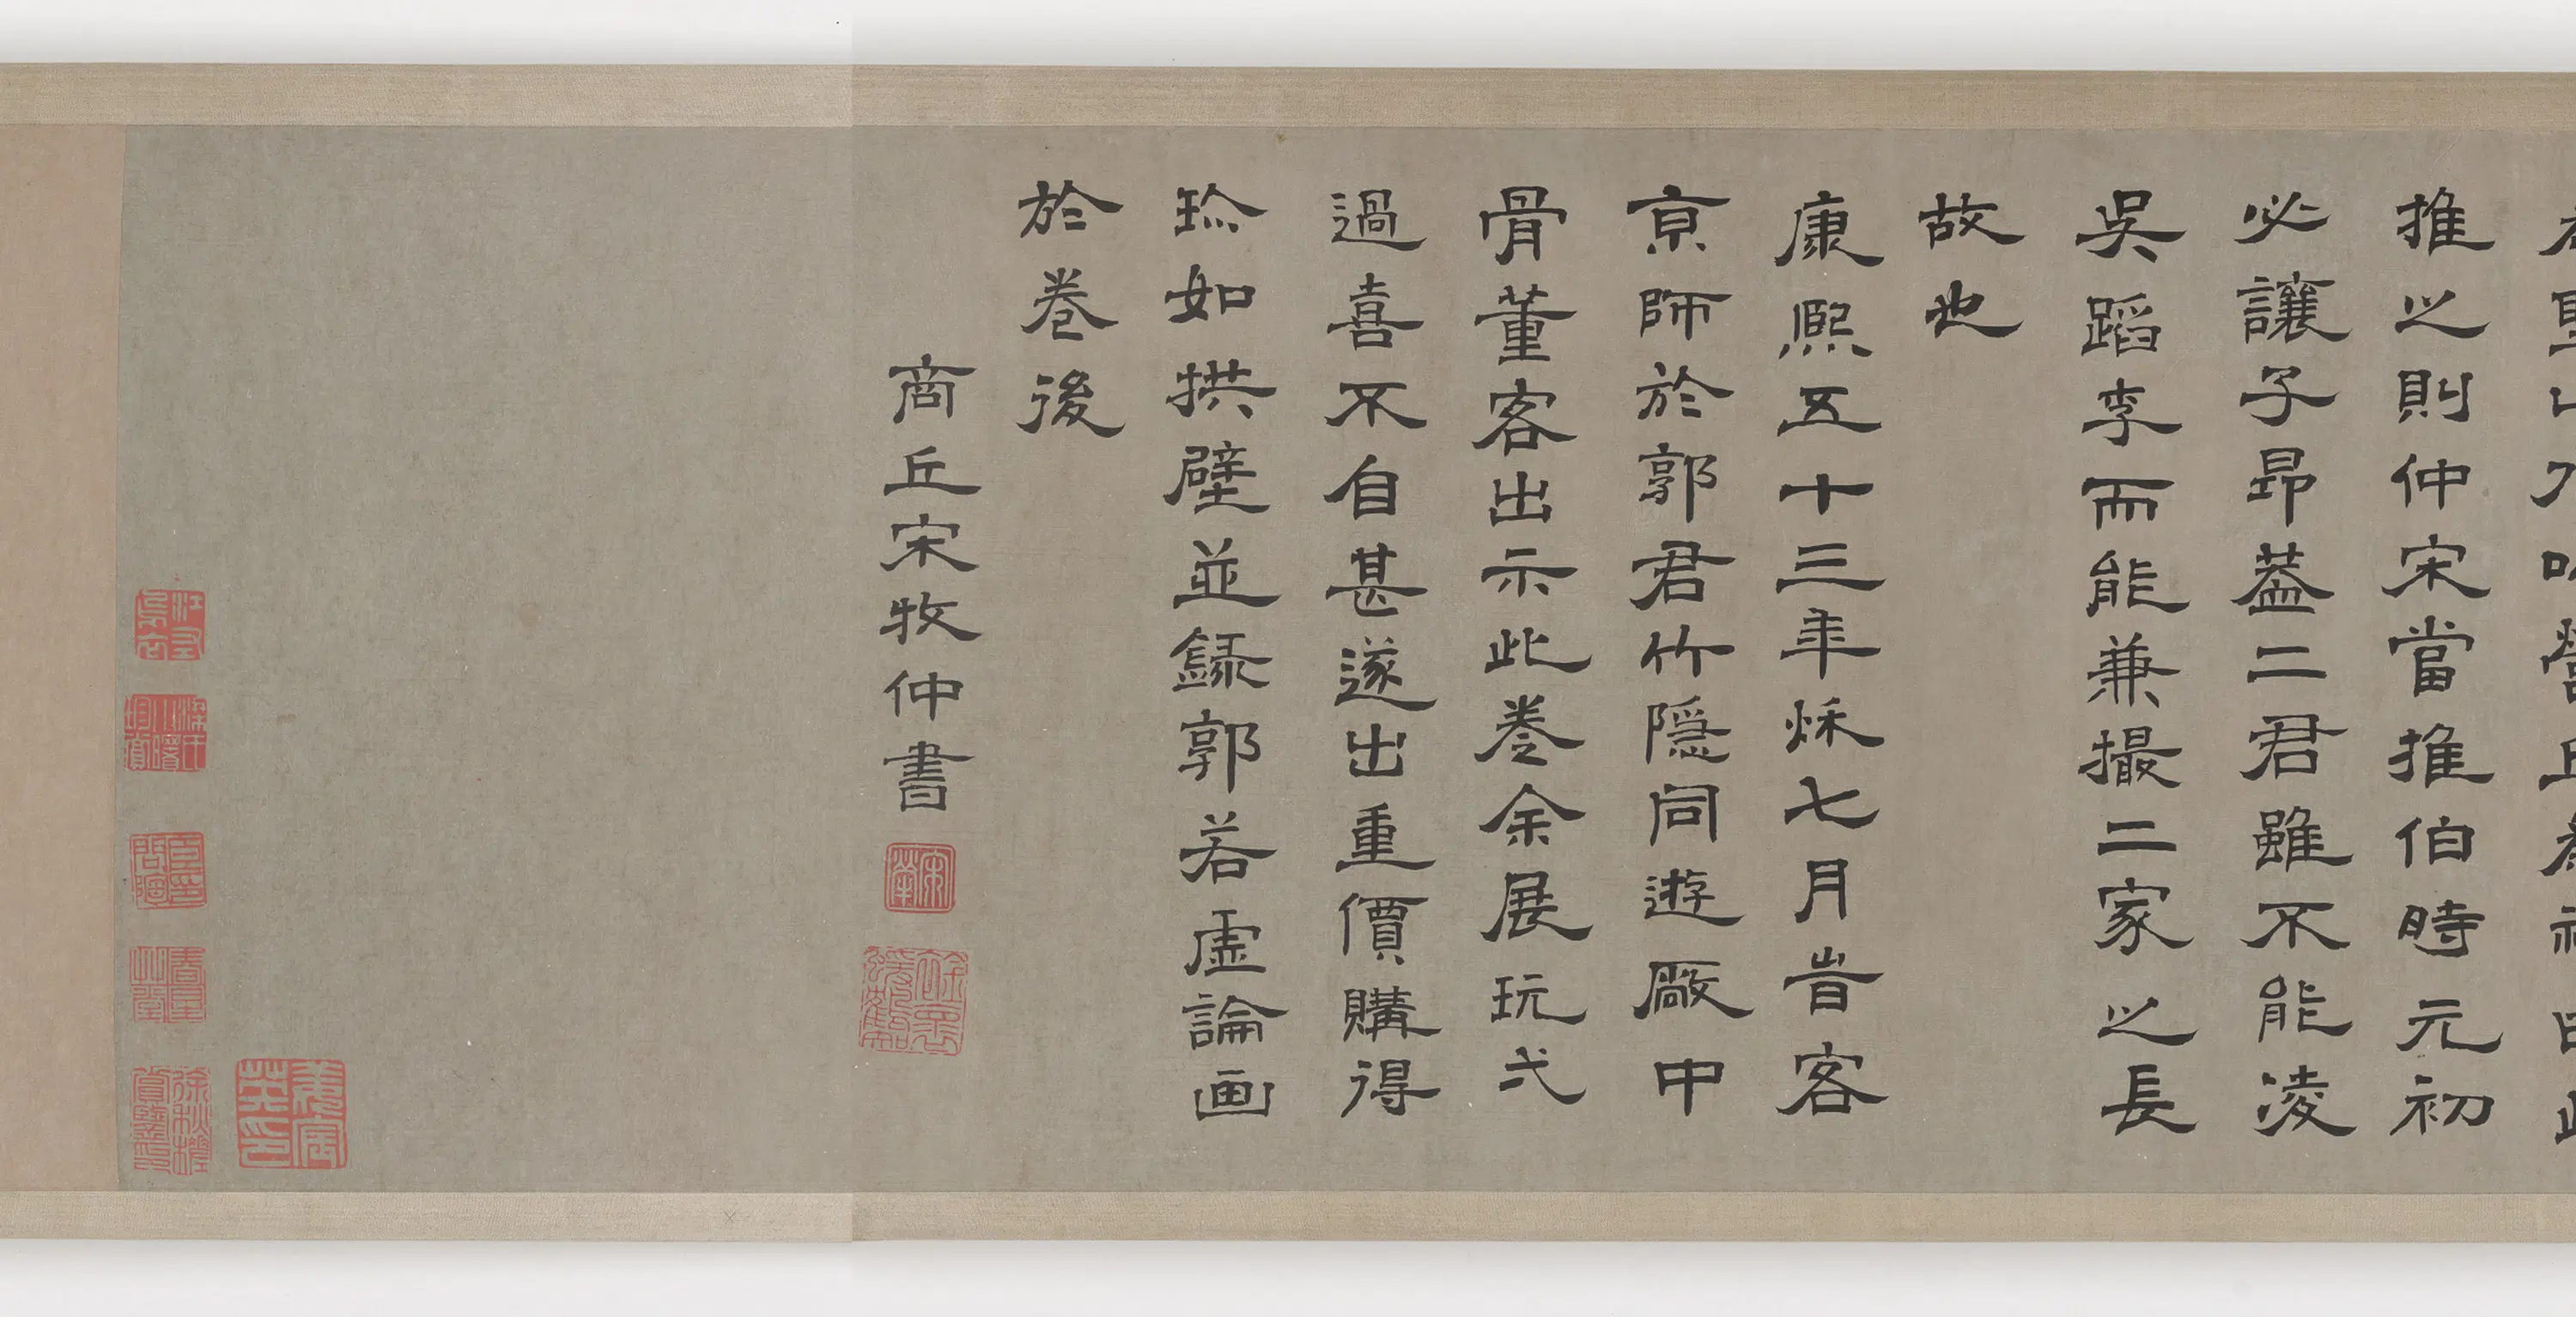 推之則仲宋當推伯時元初
必讓子昂蓋二君雖不能凌
吳蹈李而能兼撮二家之長
故也
康熙五十三年秌七月旹客
京師於郭君竹隱同遊厰中
骨董客出示此卷余展玩弍
過喜不自甚遂出重價購得
珎如拱壁並録郭若虛論画
於卷後
商丘宋牧仲書
宋犖